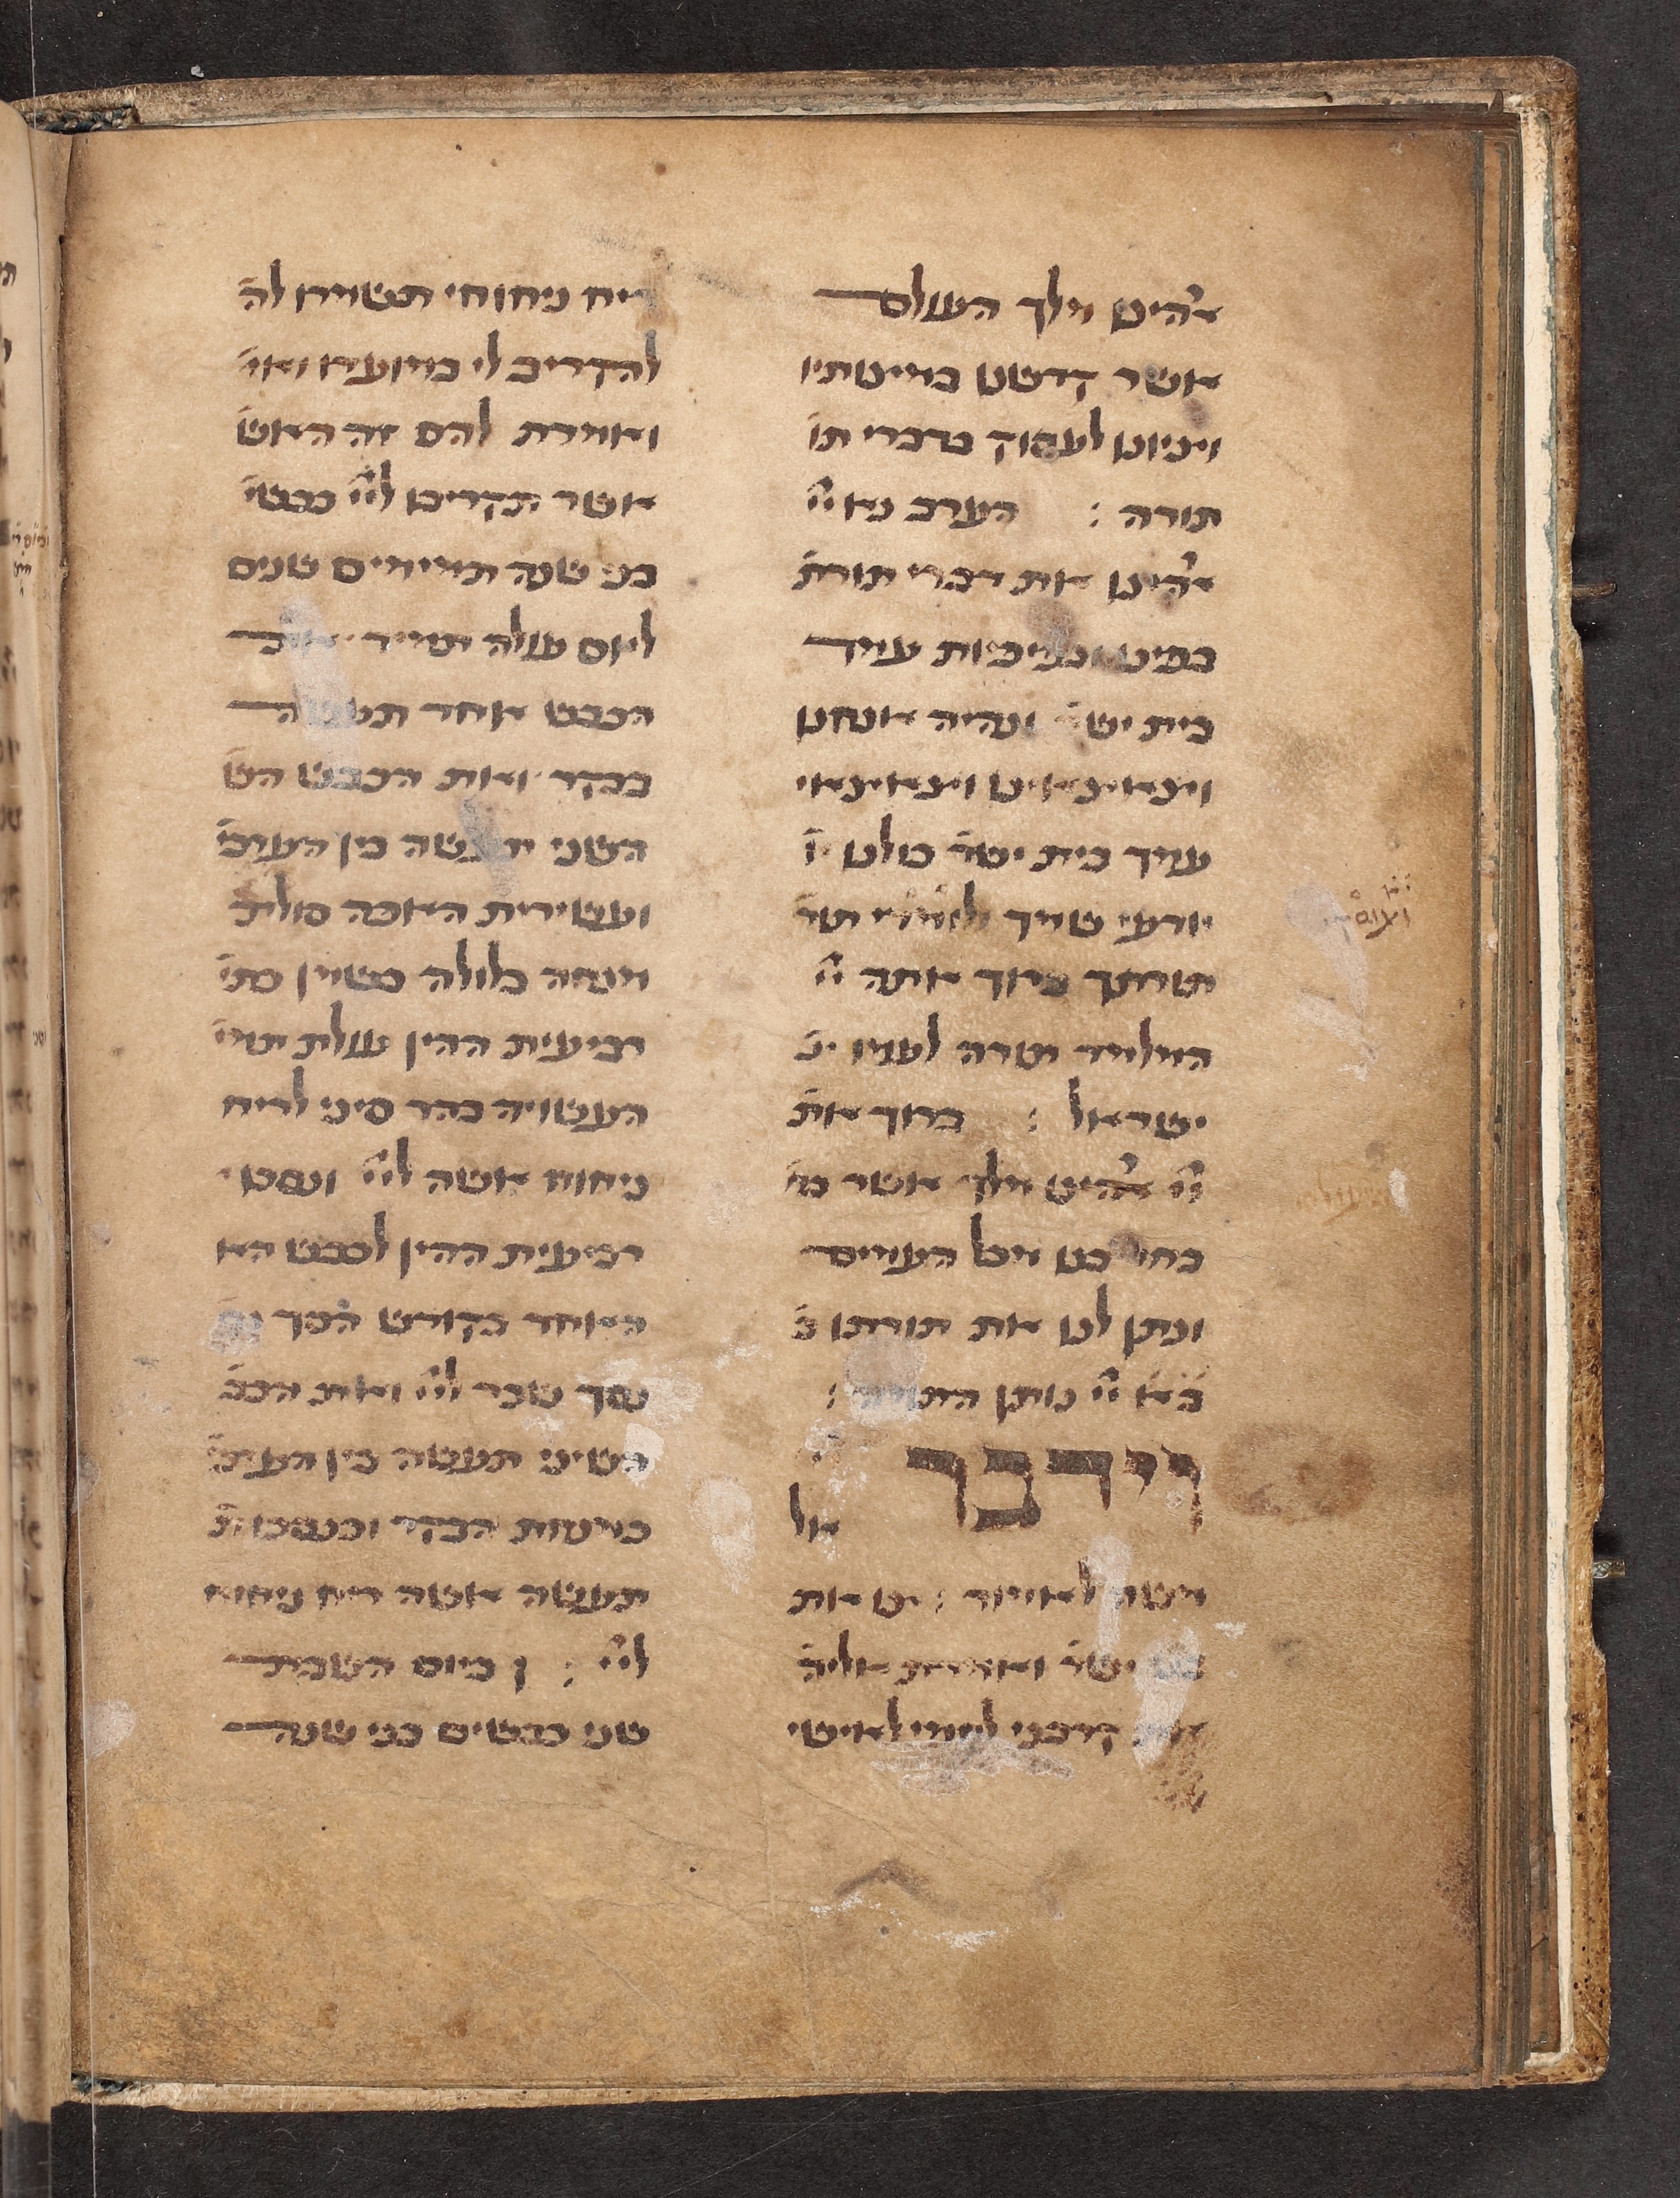 אהים מלך העולם
אשר קדשנו במצותיו
וצונו לעסוק בדברי תו
תורה : הערב נא יי
אהינו את דברי תורת
בפינו ובפיפיות עמך
בית ישר ונהיה אנחנו
וצאצאינו וצאצאי
עמך בית ישר כולנו י
יודעי שמך ולומדי תור
תורתך ברוך אתה יי
המלמד תורה לעמו יש
ישראל : ברוך את
יי אהינו מלך אשר בח
בחר בנו מכל העמים
ונתן לנו את תורתו ב
ב א יי נותן התורה :
וידבר יי
אל
משה לאמור : צו את
בני ישר ואמרת אליה
את קרבני לחמי לאישי
ריח ניחוחי תשמרו לה
להקריב לי במועדו ואמ
ואמרת להם זה האש
אשר תקריבו ליי כבשי
בני שנה תמימים שנים
ליום עולה תמיד את
הכבש אחד תעשה
בבקר ואת הכבש הש
השני תעשה בין הערב
ועשירית האפה סולת
מנחה בלולה בשמן כתי
רביעית ההין עולת תמי
העשויה בהר סיני לריח
ניחוח אשה ליי ונסכו
רביעית ההין לכבש הא
האחד בקודש הסך
נסך שכר ליי ואת הכב
השיני תעשה בין הערב
כמנחת הבקר וכנסכו ת
תעשה אשה ריח ניחוח
ליי : וביום השבת
שני כבשים בני שנה